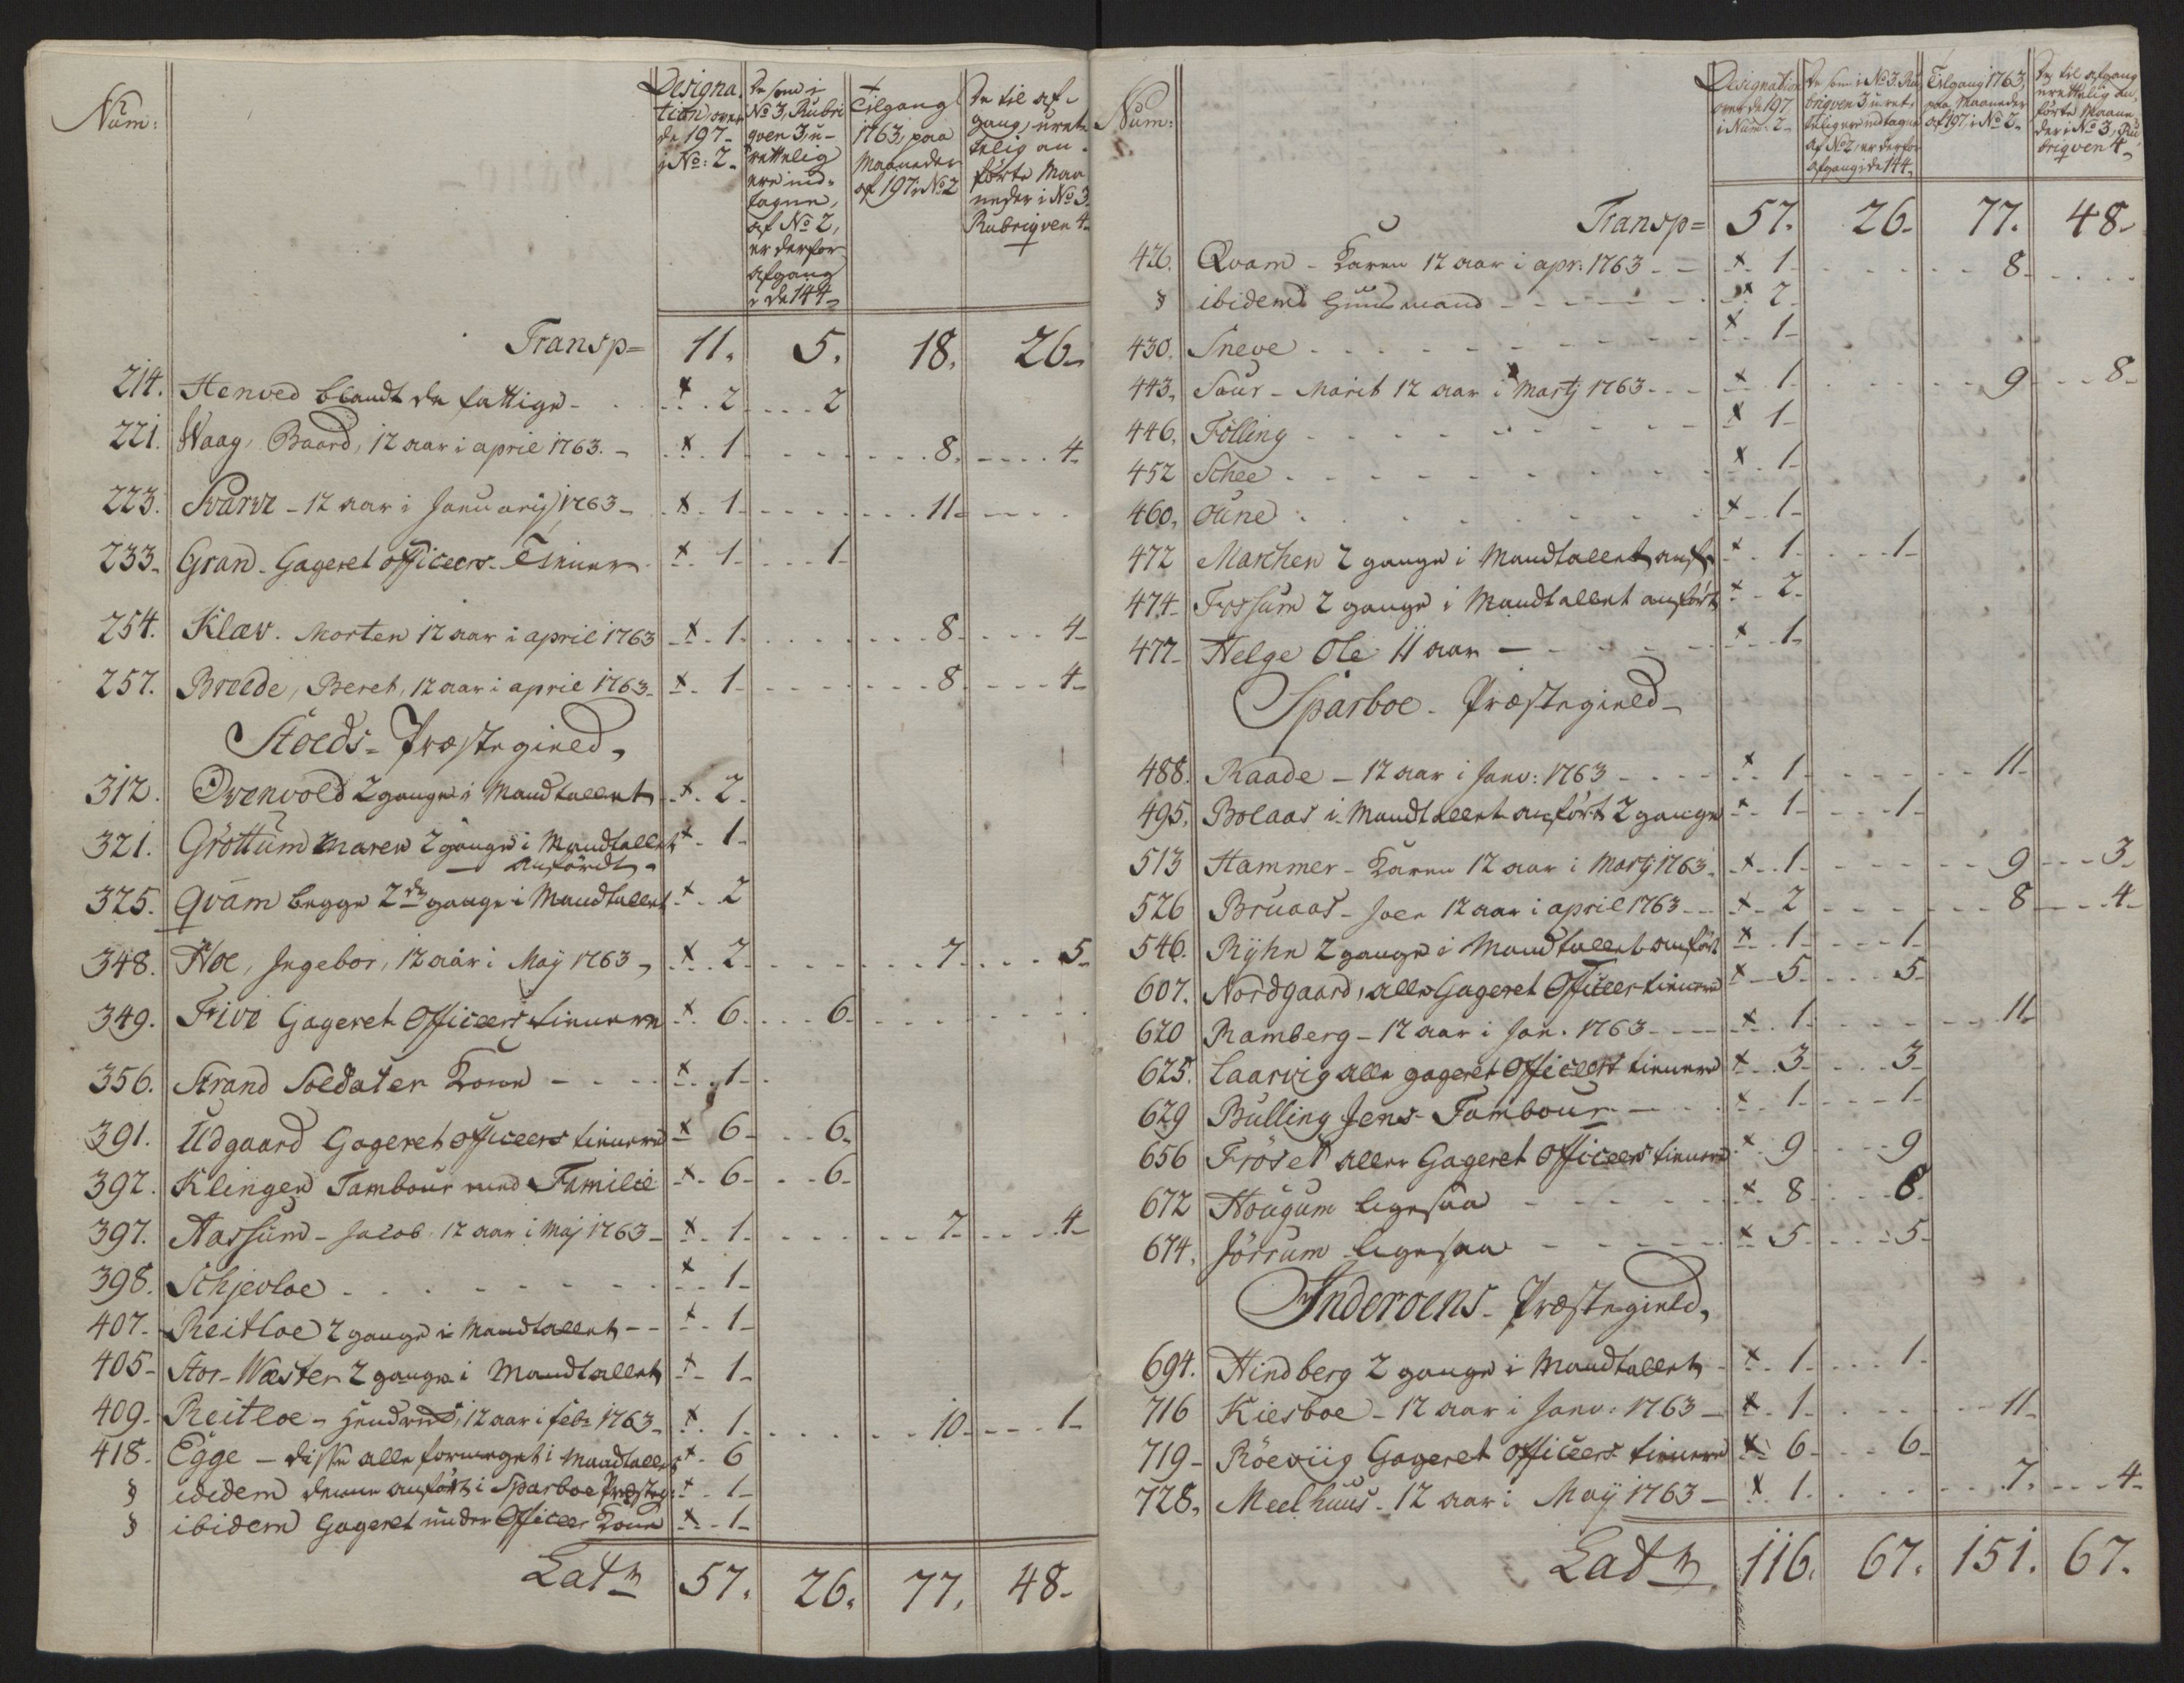 Num:
Designa-
tion over
de 197-
i No: 2-
De som i
No 3, Rubri
qven 3, u-
rettelig
ere ind-
tagne,
af No 2,
er derfor
afgang
i de 144-
Tilgang
1763, paa
Maaneder
af 197 i No 2
De til af-
gang, uret-
telig an-
førte Maa
neder i No 3-
Rubriqven 4-
Transp= 11. 5. 18. 26-
214. Henved blandt de fattige - x 2 2
221. Waag, Baard, 12 aar i april 1763. - x 1 8. 4-
223. Svarve - 12 aar i Januarij 1763 - x 1 11-
233- Gran - Gageret officeers - Tienere x 1 1-
254. Klæv. Morten 12 aar i april 1763 x 1 8 4-
257. Breede, Beret, 12 aar i april 1763- x 1 8 4-
Stoeds - Præstegield,
312. Ovenvold 2 gange i Mandtallet x 2-
321. Grøttum Maren 2 gange i Mandtallet x 1-
anfördt-
325. Qvam begge 2de gange i Mandtallet x 2
348. Hoe, Ingebor, 12 aar i Maij 1763 - x 2 7 5-
349. Five Gageret Officeers tienere x 6 6
356. Strand Soldater Kone - x 1-
391. Udgaard Gageret officeers tienere x 6 6-
392. Klingen Tambour med Familie x 6 6-
397. Aassum - Jacob 12 aar i Maj 1763 - x 1 7 4-
398. Schjevloe x 1-
407- Reitloe 2 gange i Mandtallet - - x 1-
405- Stor-Wæster 2 gange i Mandtallet x 1-
409- Reitloe - 12 aar i feb: 1763 - x 1 10 1-
418- Egge - disse alle formeget i Mandtallet x 6
§ ibidem denne anført i Sparboe Præsteg: x 1-
§ ibidem Gageret under Officeer Kone x 1-
Lat: 57. 26. 77. 48-
Num:
Designation
over de 197
i Num: 2-
De som i No 3. Ru
briqven 3, uret-
telig ere indtagne
af No 2, er derfor
afgang i de 144-
Tilgang 1763,
paa Maaneder
af 197 i No 2-
De til afgang
urettelig an-
førte Maane-
der i No 3, Ru
briqven 4-
Transp= 57. 26- 77. 48-
426. Qvam - Karen 12 aar i apr: 1763 - - x 1 8-
§ ibidem Huusmand x 2-
430. Sneve x 1-
443, Saur - Marit 12 aar i Martj 1763 - x 1 9 8-
446, Følling x 1-
452 Schee x 1-
460, Oune x 1-
472 Marchen 2 gange i Mandtallet anf- x 1 1-
474- Fossum 2 gange i Mandtallet anført x 2-
477- Helge Ole 11 aar - x 1-
Sparboe - Præstegield-
488. Raade - 12 aar i Janv: 1763 x 1 11-
495. Bolaas i Mandtallet anført 2 gange x 1 1-
513 Hammer - Karen 12 aar i Martj 1763- x 1 9 3-
526 Bruaas - Joen 12 aar i april 1763 x 2 8 4-
546. Ryhn 2 gange i Mandtallet anført x 1 1-
607. Nordgaard, alle Gageret Officeers tienere x 5 5-
620 Ramberg - 12 aar i Jan. 1763 x 1 11-
625. Laarvig alle gageret Officeers tienere x 3 3-
629 Bulling Jens - Tambour - x 1 1-
656 Frøset alle Gageret Officeers tienere x 9 9
672 Hougum ligesaa x 8 8
674, Jörrum ligesaa x 5 5-
Inderoens - Præstegield,
694. Hindberg 2 gange i Mandtallet x 1 1-
716 Kiesboe - 12 aar i Janv: 1763 - x 1 11-
719- Röeviig Gageret officeers tienere x 6 6-
728, Meelhuus - 12 aar i Maij 1763 - x 1 7 4-
Lat: 116. 67. 151. 67.